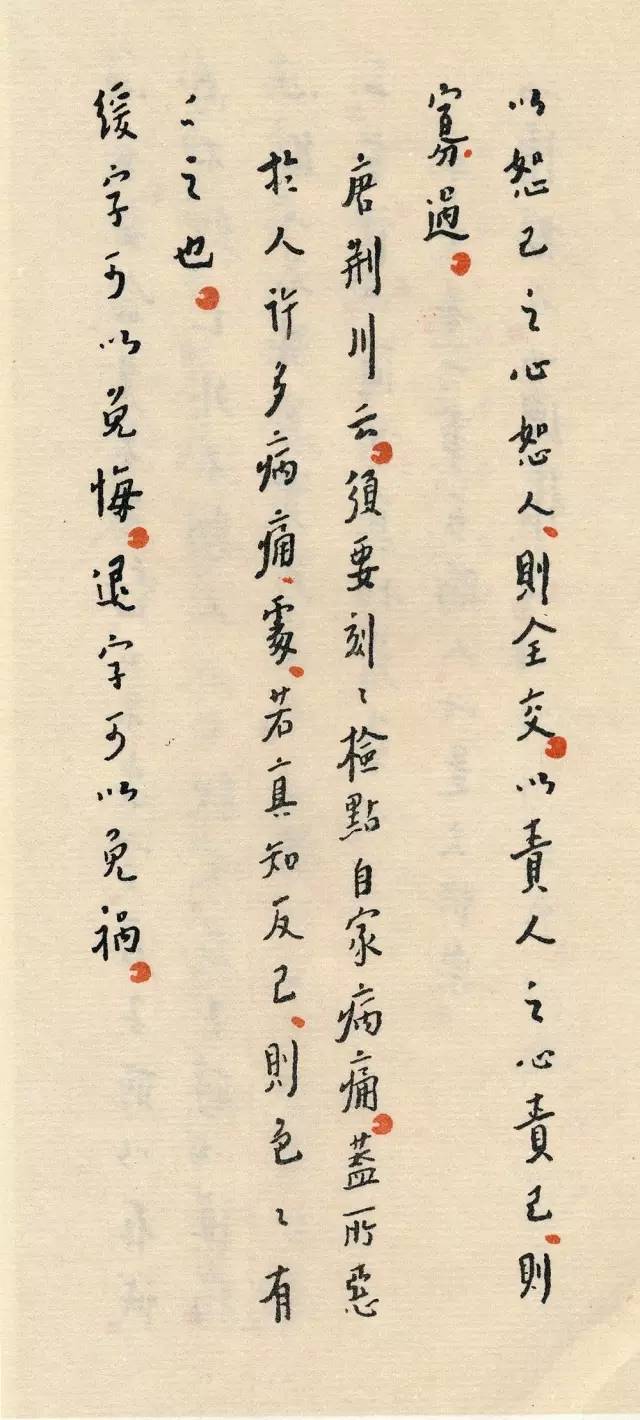 以恕己之心恕人、則全交。以責人之心責己、則
寡過。
唐荆川云。須要刻々檢點自家病痛。蓋所惡
於人許多病痛、處、若真知反己、則色々有
之也。
緩字可以免悔。退字可以免禍。